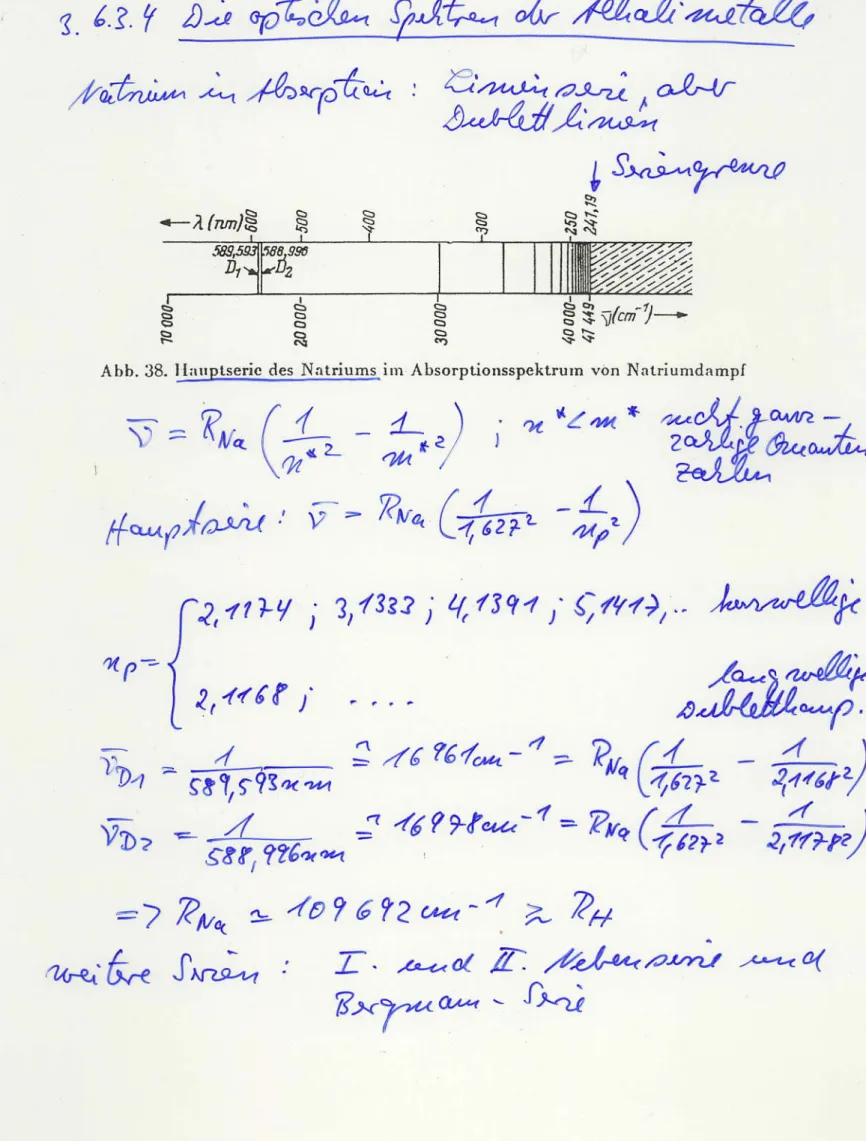 3. 6.3.4 Die optischen Spektren der Alkalimetalle
Natrium in Absorption : Linienserie, aber
Dublettlinien
↓ Seriengrenze
←λ (nm) 600 500 400 300 250 241,19
589,593 588,996
D₁ D₂
10 000 20 000 30 000 40 000 47 449 ν̄(cm⁻¹)→
Abb. 38. Hauptserie des Natriums im Absorptionsspektrum von Natriumdampf
ν̄ = R_Na (1/n*² - 1/m*²) ; n* < m* nicht ganz-
zahlige Quanten
zahlen
Hauptserie : ν̄ = R_Na (1/1,627² - 1/n_p²)
n_p = { 2,1174 ; 3,1333 ; 4,1391 ; 5,1417, .. kurzwellige
2,1168 ; .... langwellige
Dublettkomp.
ν̄_D1 = 1/589,593nm ≙ 16961cm⁻¹ = R_Na (1/1,627² - 1/2,1168²)
ν̄_D2 = 1/588,996nm ≙ 16978cm⁻¹ = R_Na (1/1,627² - 1/2,1178²)
=> R_Na ≃ 109692 cm⁻¹ ≳ R_H
weitere Serien : I. und II. Nebenserie und
Bergmann - Serie